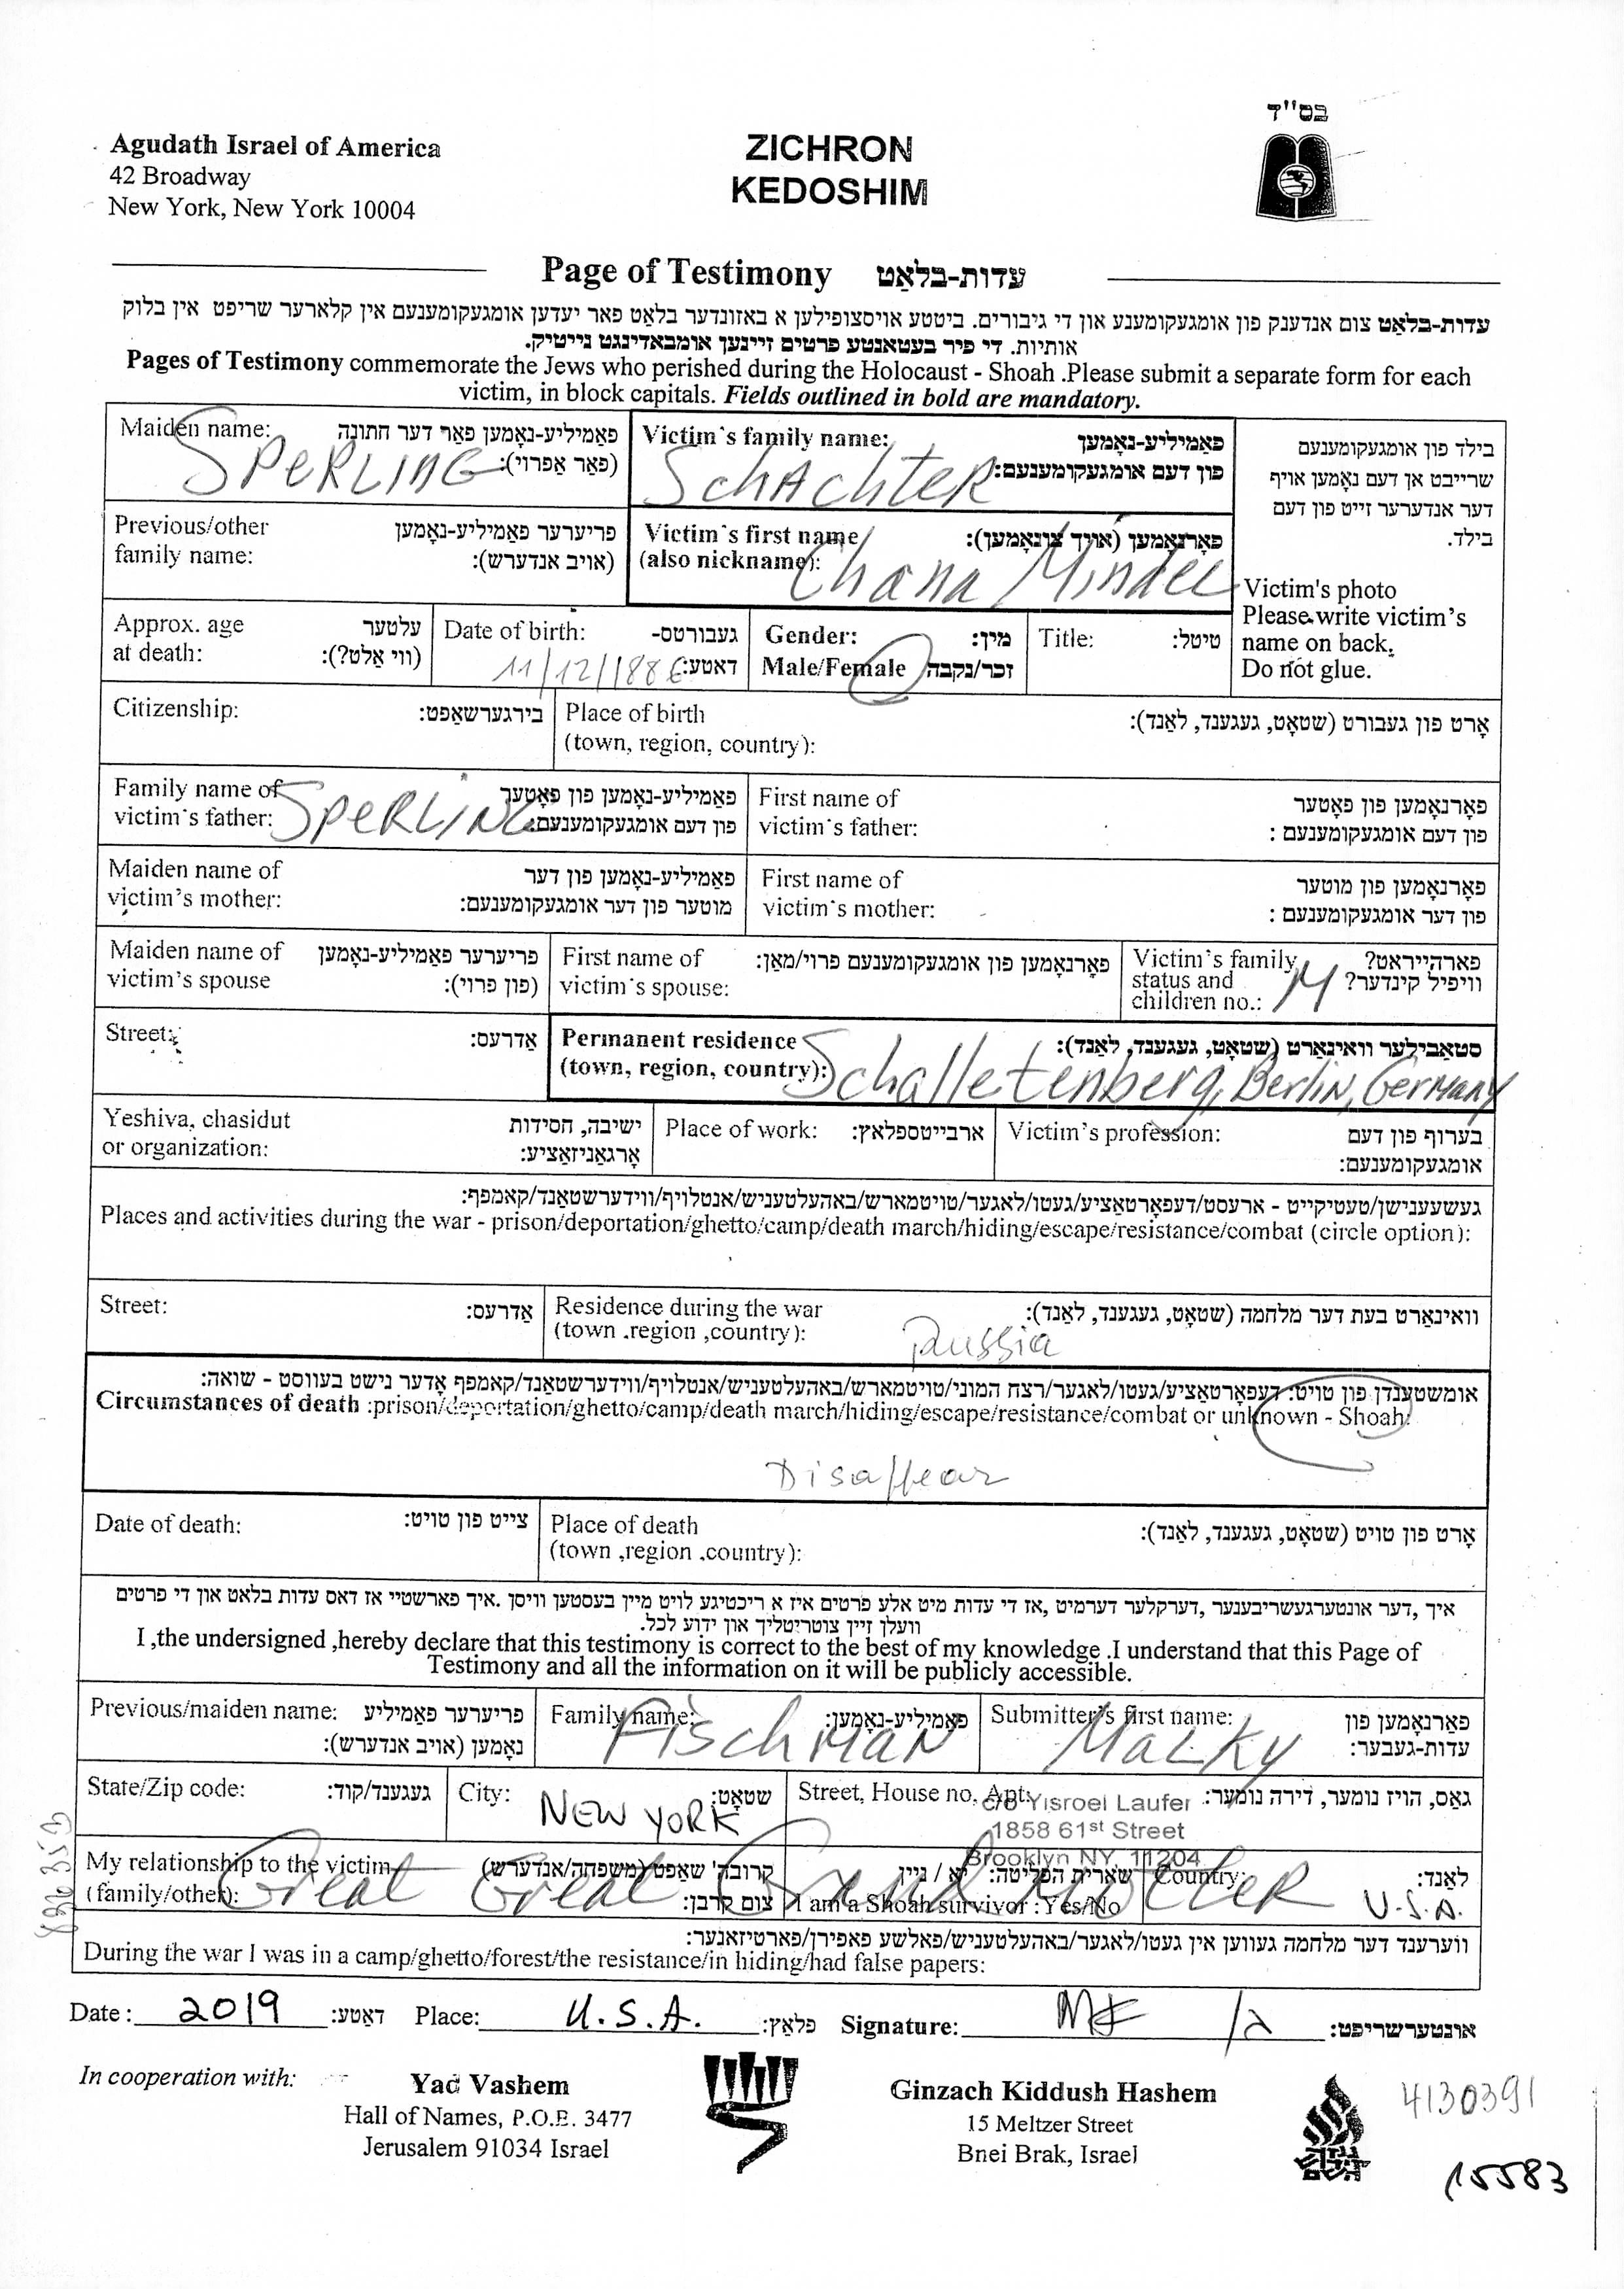 בס"ד
Agudath Israel of America
42 Broadway
New York, New York 10004
ZICHRON
KEDOSHIM
Page of Testimony עדות-בלאַט
עדות-בלאַט צום אנדענק פון אומגעקומענע און די גיבורים. ביטטע אויסצופילען א באזונדער בלאַט פאר יעדען אומגעקומענעם אין קלארער שריפט אין בלוק
אותיות. די פיר בעטאנטע פרטים זיינען אומבאדינגט נייטיק.
Pages of Testimony commemorate the Jews who perished during the Holocaust - Shoah .Please submit a separate form for each
victim, in block capitals. Fields outlined in bold are mandatory.
Maiden name: פאַמיליע-נאָמען פאַר דער חתונה
(פאַר אַפרוי):
SPERLING
Victim's family name: פאַמיליע-נאָמען
פון דעם אומגעקומענעם:
SCHACHTER
בילד פון אומגעקומענעם
שרייבט אן דעם נאָמען אויף
דער אנדערער זייט פון דעם
בילד.
Victim's photo
Please write victim's
name on back.
Do not glue.
Previous/other
family name:
פריערער פאַמיליע-נאָמען
(אויב אנדערש):
Victim's first name
(also nickname):
פאָרנאָמען (אויך צונאָמען):
Chana Mindel
Approx. age
at death:
עלטער
(ווי אַלט?):
Date of birth: געבורטס-
דאַטע:
11/12/1886
Gender: מין:
Male/Female זכר/נקבה
Title: טיטל:
Citizenship: בירגערשאַפט:
Place of birth
(town, region, country):
אָרט פון געבורט (שטאָט, געגענד, לאַנד):
Family name of
victim's father:
פאַמיליע-נאָמען פון פאָטער
פון דעם אומגעקומענעם:
SPERLING
First name of
victim's father:
פאָרנאָמען פון פאָטער
פון דעם אומגעקומענעם :
Maiden name of
victim's mother:
פאַמיליע-נאָמען פון דער
מוטער פון דער אומגעקומענעם:
First name of
victim's mother:
פאָרנאָמען פון מוטער
פון דער אומגעקומענעם :
Maiden name of
victim's spouse
פריערער פאַמיליע-נאָמען
(פון פרוי):
First name of
victim's spouse:
פאָרנאָמען פון אומגעקומענעם פרוי/מאַן:
Victim's family
status and
children no.:
פארהייראט?
וויפיל קינדער?
M
Street: אַדרעס:
Permanent residence
(town, region, country):
סטאַבילער וואוינאָרט (שטאָט, געגענד, לאַנד):
Schalletenberg, Berlin, Germany
Yeshiva, chasidut
or organization:
ישיבה, חסידות
אָרגאַניזאַציע:
Place of work: ארבייטספלאַץ:
Victim's profession: בערוף פון דעם
אומגעקומענעם:
געשעענישן/טעטיקייט - ארעסט/דעפאָרטאַציע/געטו/לאַגער/טויטמארש/באהעלטעניש/אנטלויף/ווידערשטאַנד/קאַמפף:
Places and activities during the war - prison/deportation/ghetto/camp/death march/hiding/escape/resistance/combat (circle option):
Street: אַדרעס:
Residence during the war
(town .region ,country):
וואוינאָרט בעת דער מלחמה (שטאָט, געגענד, לאַנד):
Russia
אומשטענדן פון טויט: דעפאָרטאַציע/געטו/לאַגער/רצח המוני/טויטמארש/באהעלטעניש/אנטלויף/ווידערשטאַנד/קאַמפף אָדער נישט בעוווסט - שואה:
Circumstances of death :prison/deportation/ghetto/camp/death march/hiding/escape/resistance/combat or unknown - Shoah:
Disappear
Date of death: צייט פון טויט:
Place of death
(town ,region .country):
אָרט פון טויט (שטאָט, געגענד, לאַנד):
איך ,דער אונטערגעשריבענער ,דערקלער דערמיט ,אז די עדות מיט אלע פרטים איז א ריכטיגע לויט מיין בעסטען וויסן .איך פארשטיי אז דאס עדות בלאט און די פרטים
וועלן זיין צוטריטליך און ידוע לכל.
I ,the undersigned ,hereby declare that this testimony is correct to the best of my knowledge .I understand that this Page of
Testimony and all the information on it will be publicly accessible.
Previous/maiden name: פריערער פאַמיליע
נאָמען (אויב אנדערש):
Family name: פאַמיליע-נאָמען:
Fischman
Submitter's first name: פאָרנאָמען פון
עדות-געבער:
Malky
State/Zip code: געגענד/קוד:
City: שטאָט:
NEW YORK
Street, House no. Apt: גאַס, הויז נומער, דירה נומער:
c/o Yisroel Laufer
1858 61st Street
Brooklyn NY, 11204
My relationship to the victim
(family/other):
קרובה'שאַפט (משפחה/אנדערש)
צום קרבן:
Great Great Grand Mother
שארית הפליטה: יא / ניין
I am a Shoah survivor : Yes/No
Country: לאַנד:
U.S.A.
ווערענד דער מלחמה געווען אין געטו/לאַגער/באהעלטעניש/פאלשע פאפירן/פארטיזאנער:
During the war I was in a camp/ghetto/forest/the resistance/in hiding/had false papers:
Date : 2019 דאַטע: Place: U.S.A. פלאַץ: Signature: MF ג/ אונטערשריפט:
In cooperation with:
Yad Vashem
Hall of Names, P.O.B. 3477
Jerusalem 91034 Israel
Ginzach Kiddush Hashem
15 Meltzer Street
Bnei Brak, Israel
4130391
15583